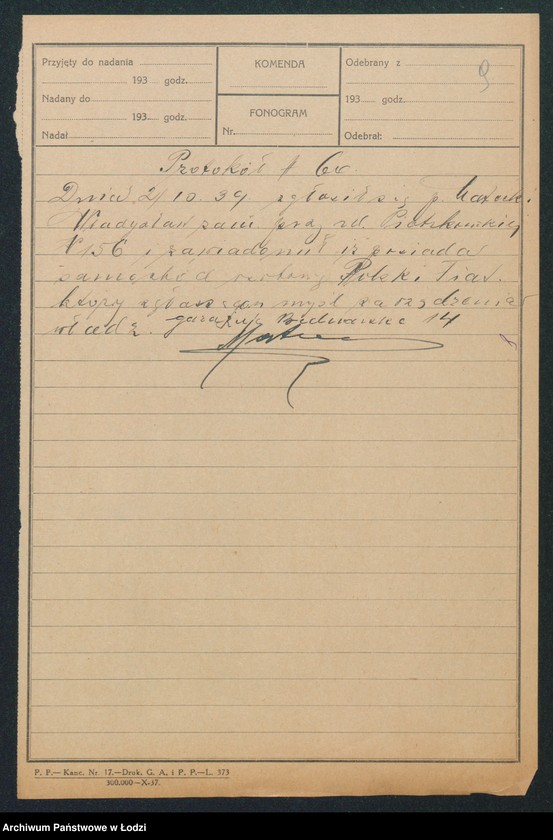 Przyjęty do nadania
193 godz.
Nadany do
193 godz.
Nadał
KOMENDA
FONOGRAM
Nr.
Odebrany z
193 godz.
Odebrał:
9
Protokół
Dnia 2/10.39 zgłosił się p.
Władysław zam. przy ul. Piotrkowskiej
N 156 i zawiadomił iż posiada
samochód Polski Fiat
który zgłasza w myśl zarządzenia
władz. garażuje 14
P. P.— Kanc. Nr 17.—Druk. G. A. i P. P.—L. 373
300.000—X-37.
Archiwum Państwowe w Łodzi